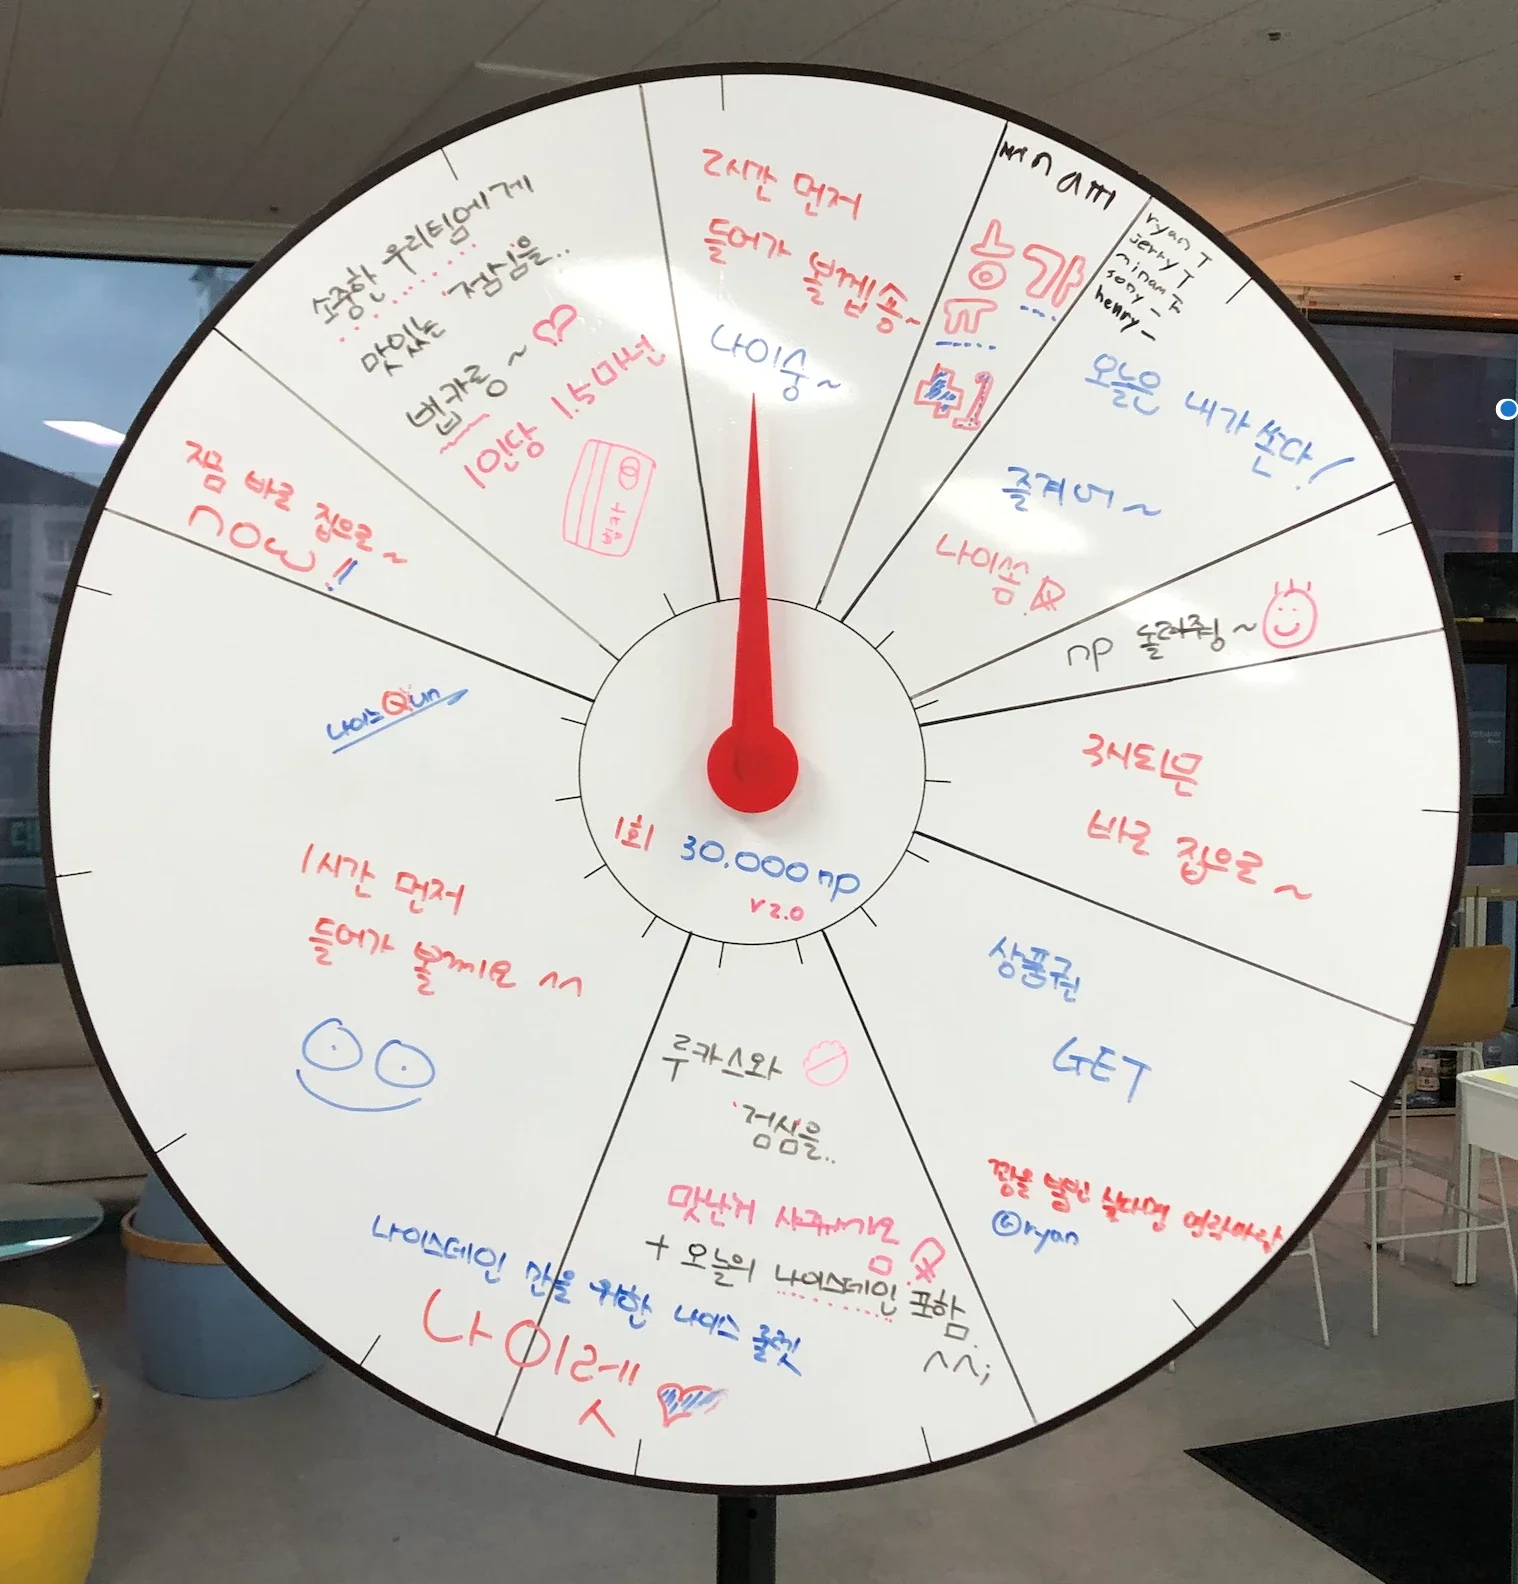 2시간 먼저
들어가 볼껩숑~
나이숭~
minam
유
승가
+1
ryan T
jerry T
minam F
sony –
henry –
오늘은 내가 쏜다!
즐겨어~
나이쏨
np 돌려줭~
3시되믄
바로 집으로~
상품권
GET
꽝을 붙인 싶다면 연락바람
©ryan
루카스와
점심을..
맛난거 사줘서가요
+ 오늘의 나이스데인 포함
^^;
나이스데인 만을 위한 나이스 룰렛
나이렛
1시간 먼저
들어가 볼께요 ^^
나이스Qun
지금 바로 집으로~
now!!
소중한 우리팀에게
맛있는 점심을..
법카룽~
1인당 1.5마넌
법카
1회 30.000np
v2.0